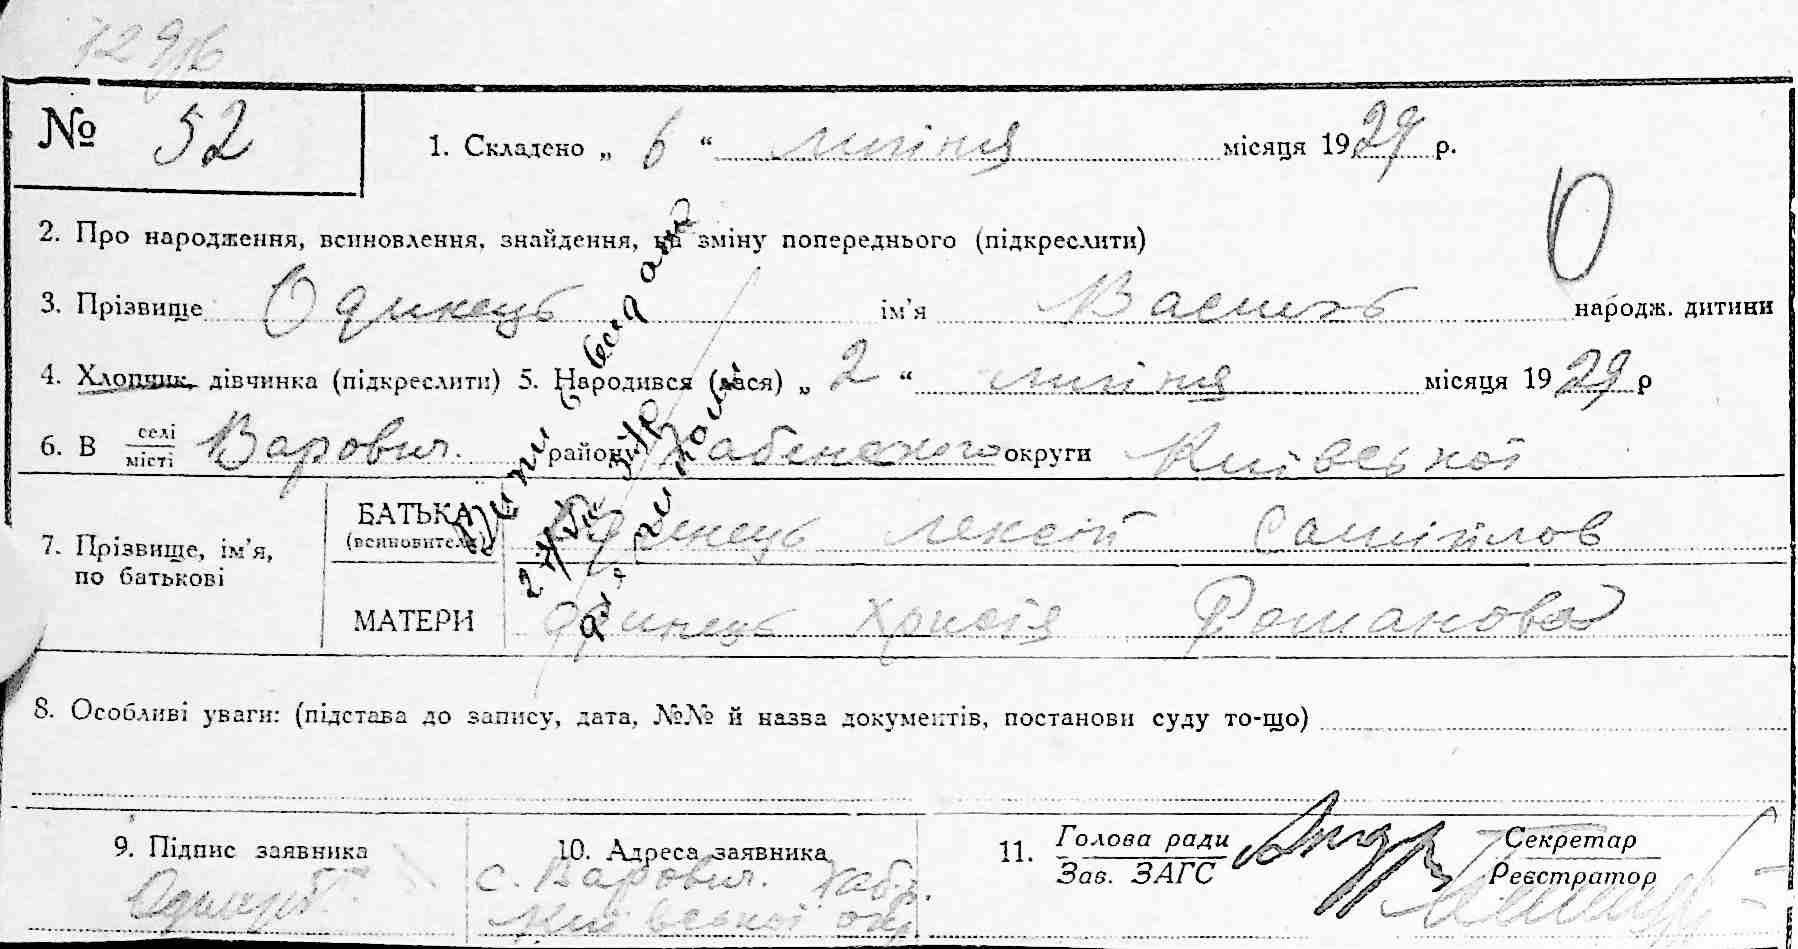 № 52
1. Складено „ 6 “ липня місяця 1929 р.
2. Про народження, всиновлення, знайдення, на зміну попереднього (підкреслити)
3. Прізвище Одинець ім'я Василь народж. дитини
4. Хлопчик, дівчинка (підкреслити) 5. Народився (лася) „ 2 “ липня місяця 1929 р
6. В селі місті Варович. району Хабенского округи Київської
7. Прізвище, ім'я, по батькові
БАТЬКА (всиновителя) Одинець Лексій Самійлов
МАТЕРИ Одинець Христя Романова
8. Особливі уваги: (підстава до запису, дата, №№ й назва документів, постанови суду то-що)
9. Підпис заявника
10. Адреса заявника
с. Варович. Хабн.
Київської окр
11. Голова ради
Зав. ЗАГС
Секретар
Реєстратор